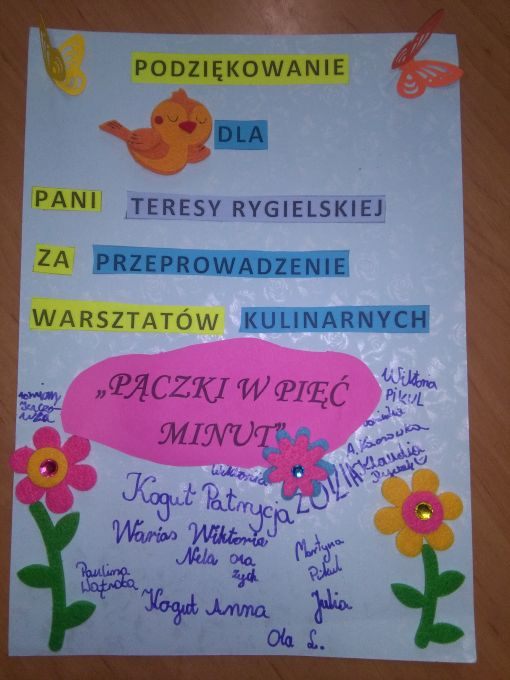 PODZIĘKOWANIE
DLA
PANI TERESY RYGIELSKIEJ
ZA PRZEPROWADZENIE
WARSZTATÓW KULINARNYCH
„PĄCZKI W PIĘĆ
MINUT”
Wiktoria
Pikul
Klaudia
Wiktoria
ZUZIA
Kogut Patrycja
Warias Wiktoria
Nela Ola
Martyna
Pikul
Paulina
Wątroba
Kogut Anna
Julia
Ola L.